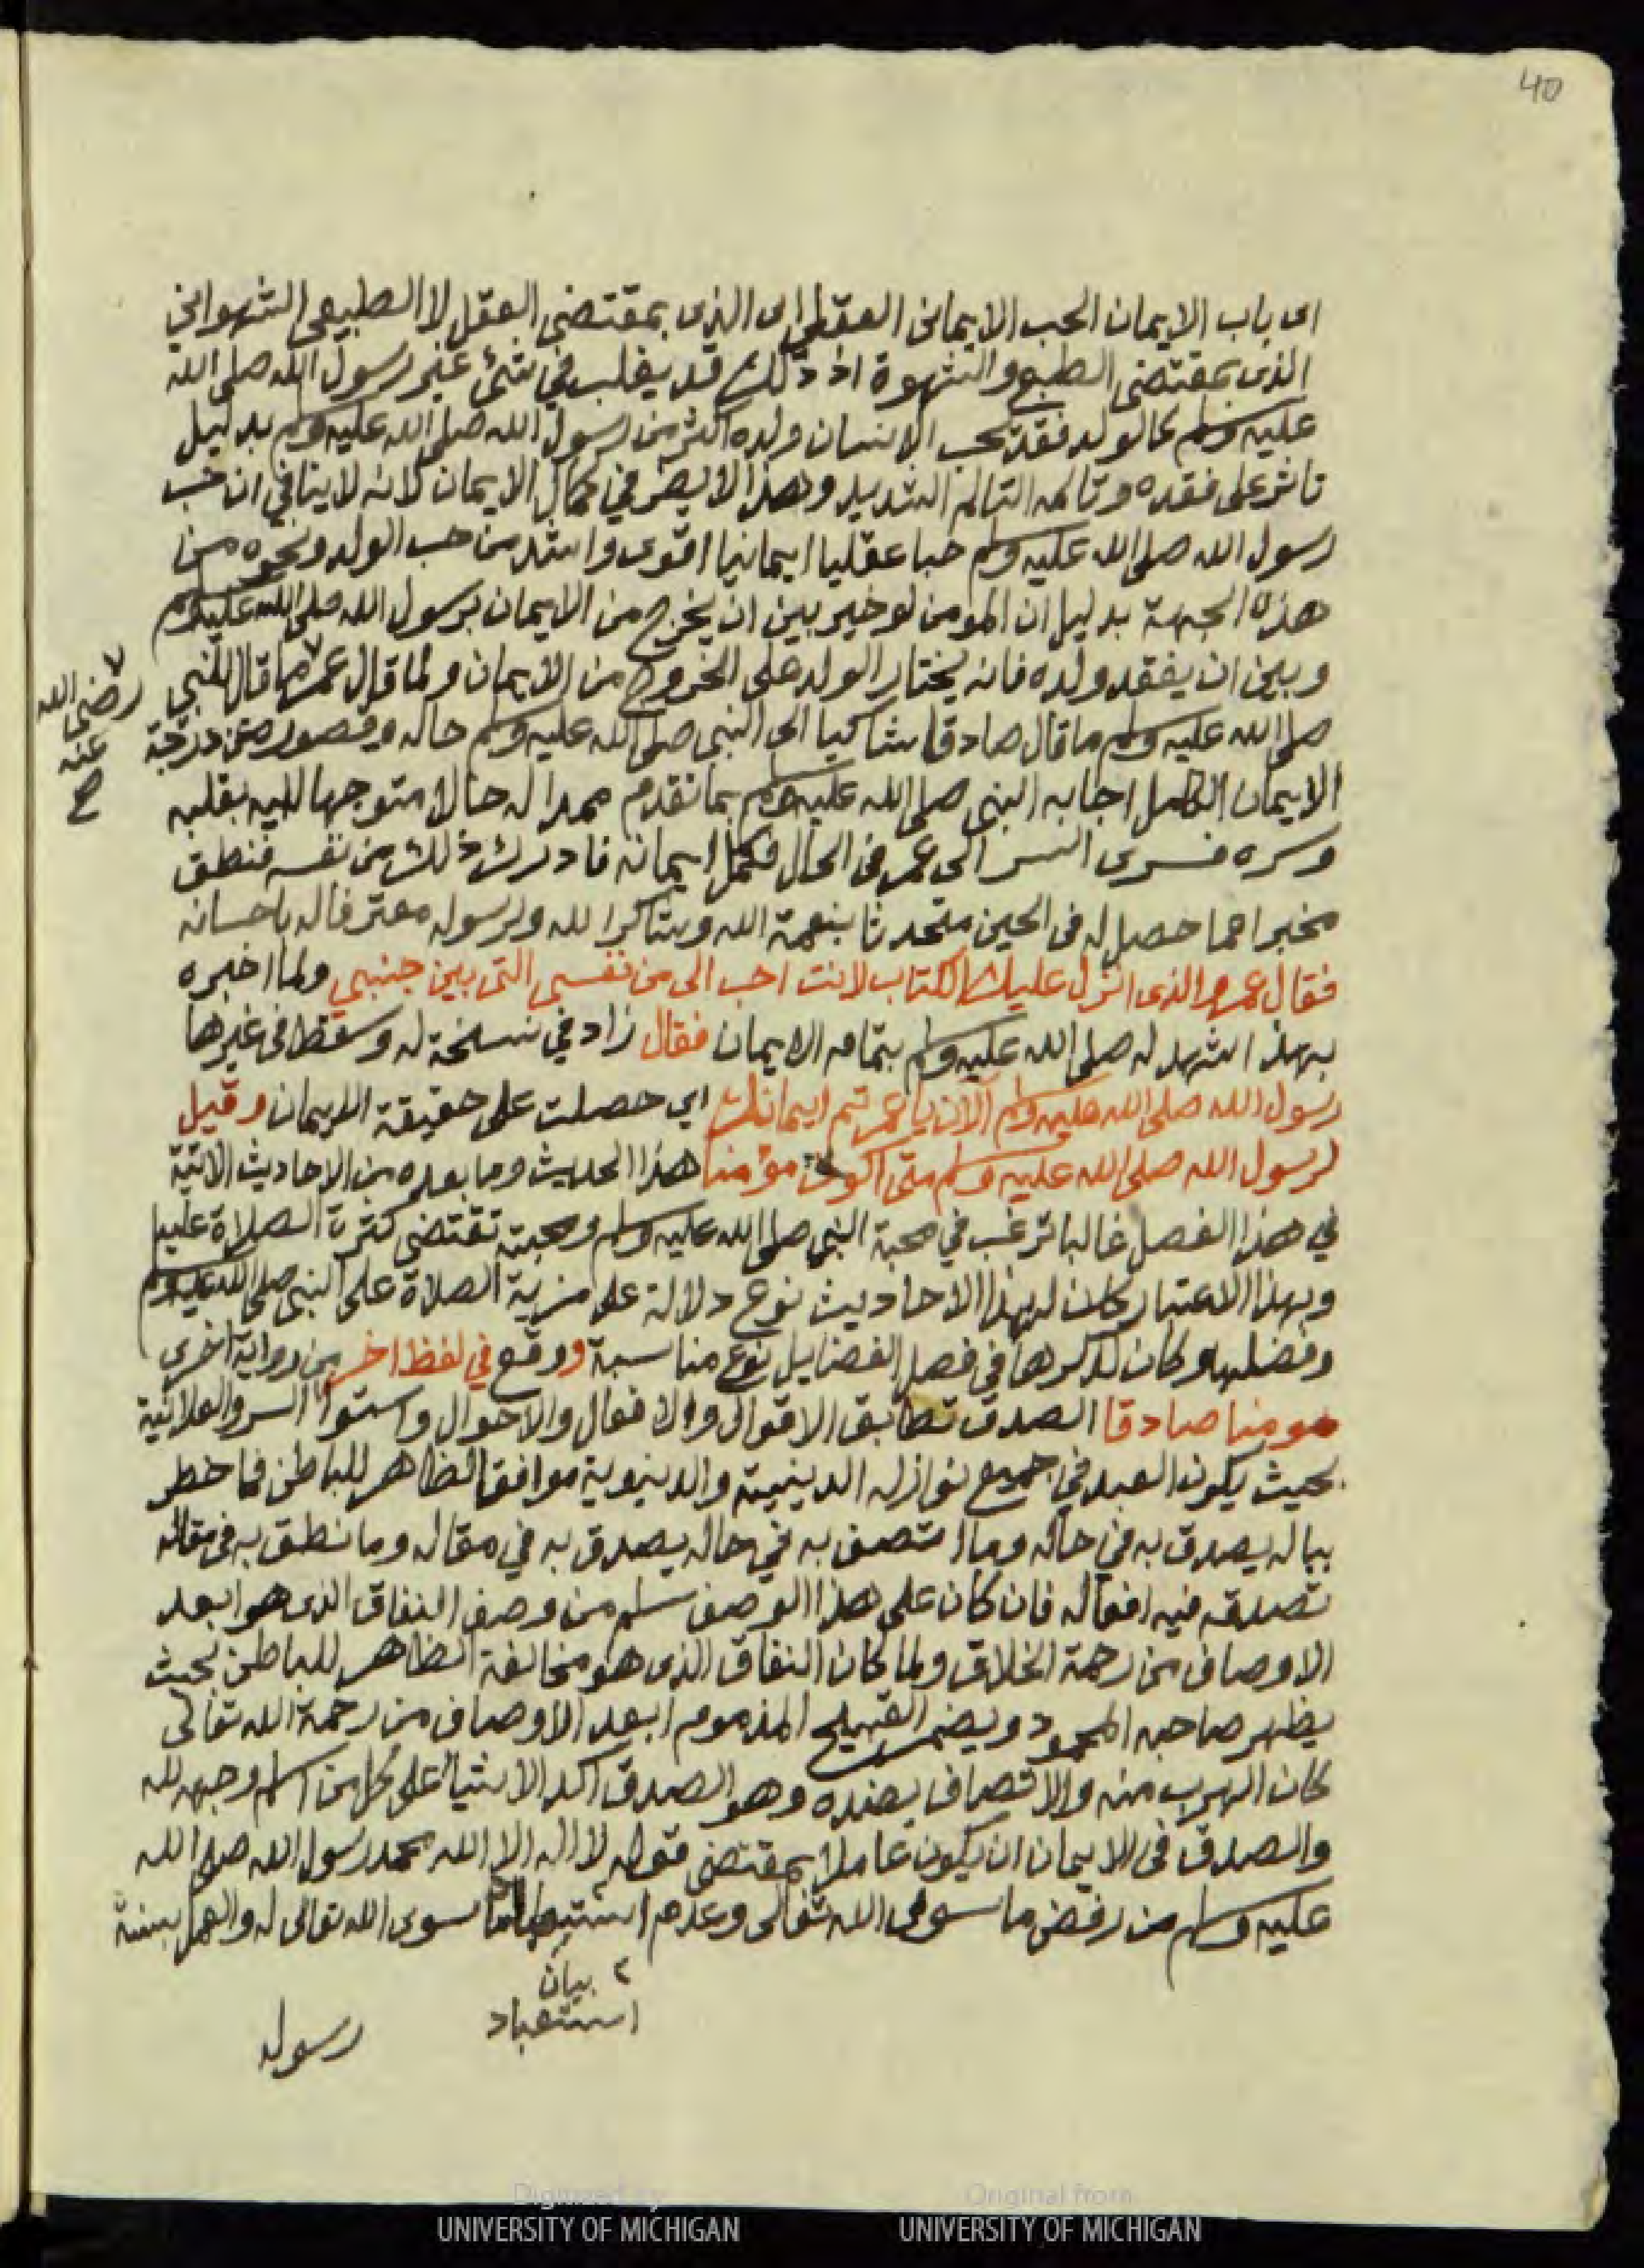 40
اى باب الايمان الحب الايمانى العقلى اى الذى بمقتضى العقل لا الطبيعى الشهوانى
الذى بمقتضى الطبع والشهوة اذ ذلك قد يغلب في شئ غير رسول الله صلى الله
عليه وسلم كالولد فقد يحب الانسان ولده اكثر من رسول الله صلى الله عليه وسلم بدليل
تاثر على فقده وتالمه التالم الشديد وهذا لا يضر في كمال الايمان لانه لا ينافي ان حب
رسول الله صلى الله عليه وسلم حبا عقليا ايمانيا اقوى واشد من حب الولد ونحوه من
هذه الجهة بدليل ان المومن لو خير بين ان يخرج من الايمان برسول الله صلى الله عليه وسلم
وبين ان يفقد ولده فانه يختار الولد على الخروج من الايمان ولما قال عمر ما قال للنبي
رضى الله
عنه
صح
صلى الله عليه وسلم ما قال صادقا شاكيا الى النبى صلى الله عليه وسلم حاله وقصوره عن درجة
الايمان الكامل اجابه النبى صلى الله عليه وسلم بما تقدم ممدا له حالا متوجها اليه بقلبه
وسره فسرى السر الى عمر فى الحال فكمل ايمانه فادرك ذلك من نفسه فنطق
مخبرا عما حصل له فى الحين متحدثا بنعمة الله وشاكرا لله ولرسوله معترفا له باحسانه
فقال عمر والذى انزل عليك الكتاب لانت احب الى من نفسى التى بين جنبي ولما اخبره
بهذا شهد له صلى الله عليه وسلم بتمام الايمان فقال زاد في نسخة له وسقط في غيرها
رسول الله صلى الله عليه وسلم الآن يا عمر تم ايمانك اي حصلت على حقيقة الايمان وقيل
لرسول الله صلى الله عليه وسلم متى اكون مؤمنا هذا الحديث وما بعده من الاحاديث الاتية
في هذا الفصل غالبا ترغب في محبة النبى صلى الله عليه وسلم ومحبته تقتضى كثرة الصلاة عليه
وبهذا الاعتبار كان لهذا الاحاديث نوع دلالة على مزية الصلاة على النبى صلى الله عليه وسلم
وفضلها وكان لذكرها في فصل الفضايل نوع مناسبة ووقع في لفظ اخر من رواية اخرى
مومنا صادقا الصدق تطابق الاقوال والافعال والاحوال واستوا السر والعلانية
بحيث يكون العبد في جميع نوازله الدينية والدنيوية موافقا لظاهر للباطن فما خطر
بباله يصدق به في حاله وما اتصف به في حاله يصدق به في مقاله وما نطق به في مقاله
تصدقه فيه افعاله فان كان على هذا الوصف سلم من وصف النفاق الذى هو ابعد
الاوصاف من رحمة الخلاق ولما كان النفاق الذى هو مخالفة الظاهر للباطن بحيث
يظهر صاحبه المحمود ويضمر القبيح المذموم ابعد الاوصاف من رحمة الله تعالى
كان الهرب منه والاتصاف بضده وهو الصدق اكد الاشيا على كل من اسلم وجهه لله
والصدق فى الايمان ان يكون عاملا بمقتضى قوله لا اله الا الله محمد رسول الله صلى الله
عليه وسلم من رفض ما سوى الله تعالى وعدم سوى الله تعالى له والعمل بسنة
٢ بيان
استعباد
رسوله
Digitized by
UNIVERSITY OF MICHIGAN
Original from
UNIVERSITY OF MICHIGAN